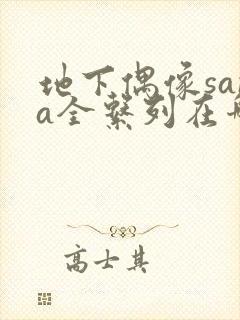 地下偶像sa
a全繫列在
高士其